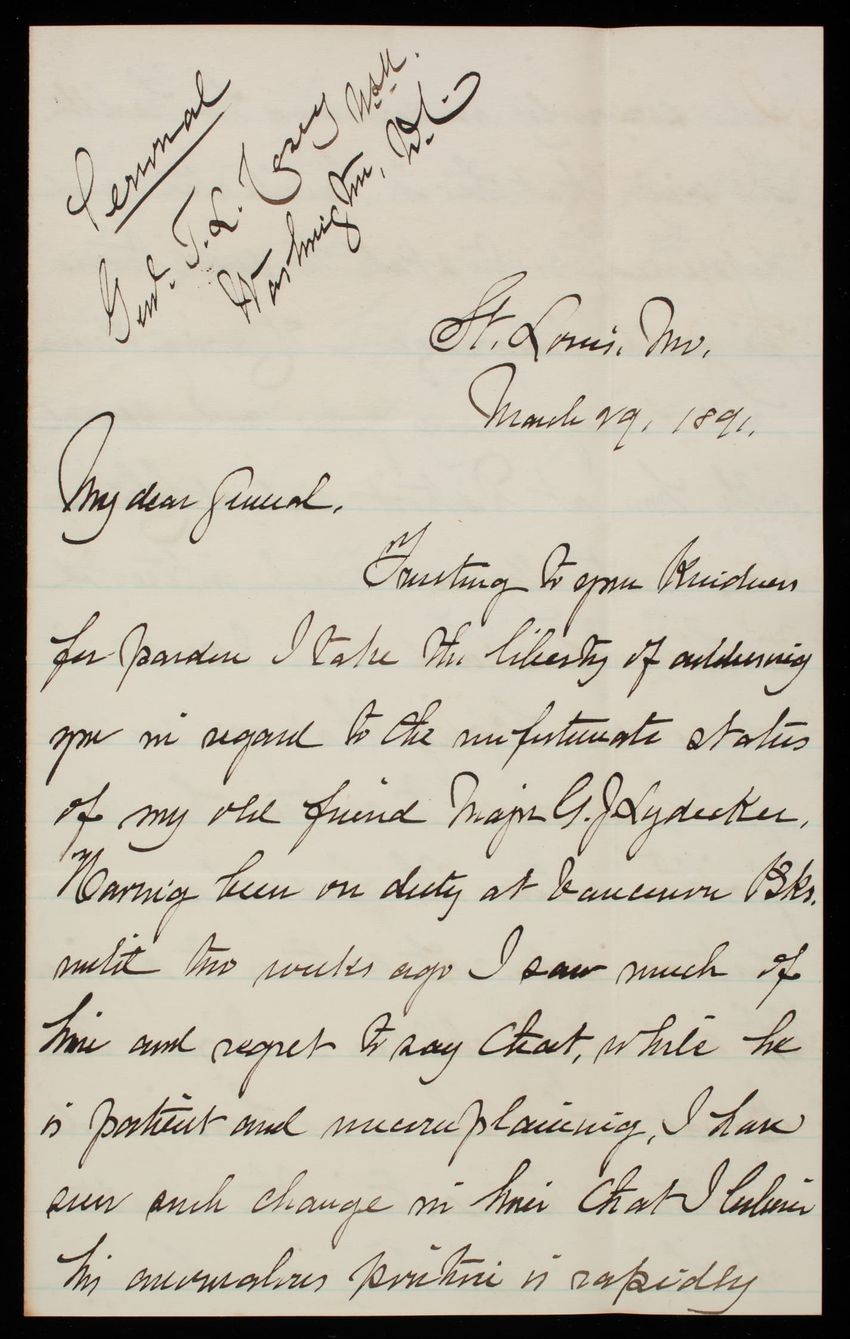 Personal
Genl. T. L. Casey U.S.A.
Washington, D.C.
St. Louis, Mo.
March 29, 1891.
My dear General,
Trusting to your Kindness
for pardon I take the liberty of addressing
you in regard to the unfortunate status
of my old friend Major G. J. Lydecker.
Having been on duty at Vancouver Bks.
until two weeks ago I saw much of
him and regret to say that, while he
is patient and uncomplaining, I have
seen such change in him that I believe
his anomalous position is rapidly